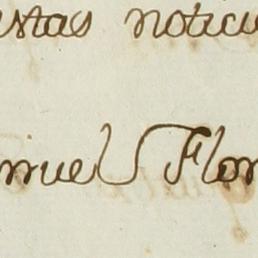 estas notici
nuel Flor